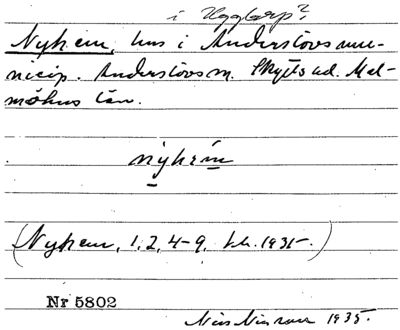 i Uggarp?
Nyhem, hus i Anderslövs mu-
nicip. Anderslövs sn. Skytts hd. Mal-
möhus län.
nýhém
(Nyhem, 1, 2, 4-9, kb. 1931-.)
Nr 5802
1935.